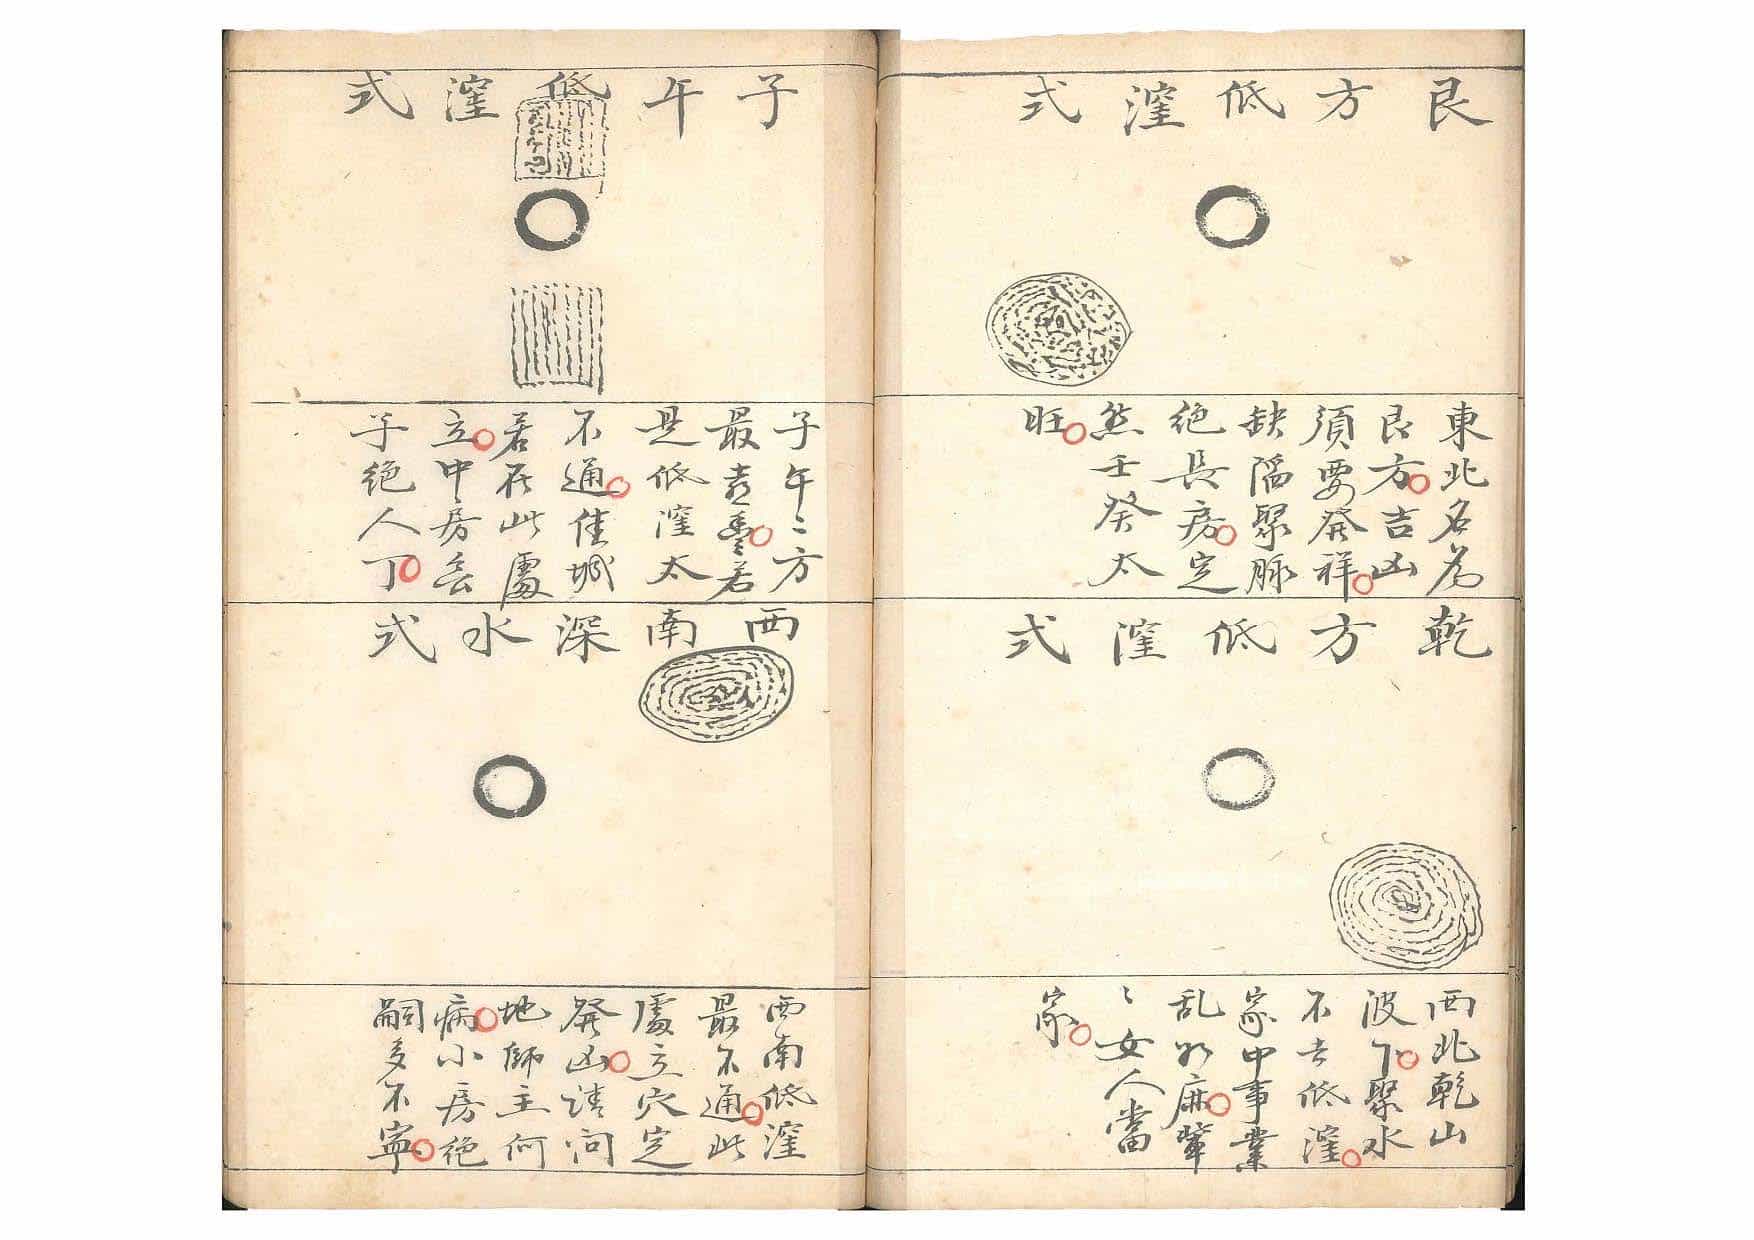 艮方低漥式
東北名為
艮方吉凶
須要發祥
缺陷聚脉
絶長房定
然壬癸太
旺
乾方低漥式
西北乾山
波下聚水
不去低漥
家中事業
乱如麻輩
々女人當
家
子午低漥式
子午二方
最喜豐若
是低漥太
不通佳城
若在此處
立中房
子絶人丁
西南深水式
西南低漥
最不通此
處立穴定
發凶請問
地師主何
病小房絶
嗣多不寧